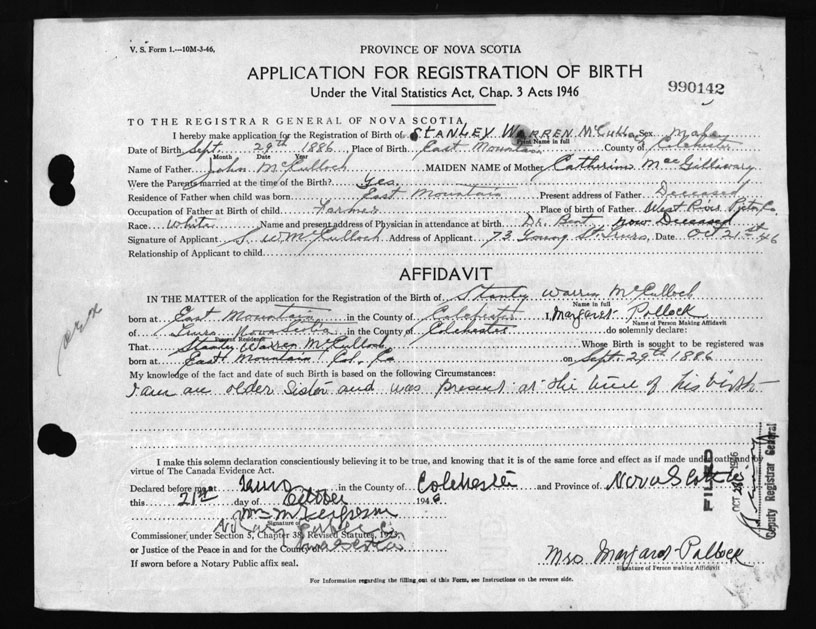 V. S. Form 1.—10M-3-46.
PROVINCE OF NOVA SCOTIA
APPLICATION FOR REGISTRATION OF BIRTH
Under the Vital Statistics Act, Chap. 3 Acts 1946
990142
TO THE REGISTRAR GENERAL OF NOVA SCOTIA
I hereby make application for the Registration of Birth of STANLEY WARREN McCulloch Sex Male
Print Name in full
Date of Birth Sept. 29th 1886 Place of Birth East Mountain County of Colchester
Month Date Year
Name of Father John McCulloch MAIDEN NAME of Mother Catherine MacGillivary
Were the Parents married at the time of the Birth? Yes
Residence of Father when child was born East Mountain Present address of Father Deceased
Occupation of Father at Birth of child Farmer Place of birth of Father West River Pictou Co.
Race White Name and present address of Physician in attendance at birth Dr. now Deceased
Signature of Applicant S. W. McCulloch Address of Applicant 73 Young St. Truro, Date Oct 21st 46
Relationship of Applicant to child
AFFIDAVIT
IN THE MATTER of the application for the Registration of Birth of Stanley Warren McCulloch
Name in full
born at East Mountain in the County of Colchester I, Margaret Pollock
Name of Person Making Affidavit
of Truro Nova Scotia in the County of Colchester do solemnly declare:
Present Residence
That Stanley Warren McCulloch Whose Birth is sought to be registered was
born at East Mountain Col. Co on Sept. 29th 1886
My knowledge of the fact and date of such Birth is based on the following Circumstances:
I am an older Sister and was Present at the time of his birth
I make this solemn declaration conscientiously believing it to be true, and knowing that it is of the same force and effect as if made under oath and by
virtue of The Canada Evidence Act.
Declared before me at Truro in the County of Colchester and Province of Nova Scotia
this 21st day of October 1946
Wm M Ferguson
Signature of
A Notary Public
Commissioner under Section 5, Chapter 38, Revised Statutes, 1923,
or Justice of the Peace in and for the County of Nova Scotia
If sworn before a Notary Public affix seal.
Mrs Margaret Pollock
Signature of Person making Affidavit
For Information regarding the filling out of this Form, see Instructions on the reverse side.
FILED
OCT 1946
Deputy Registrar General